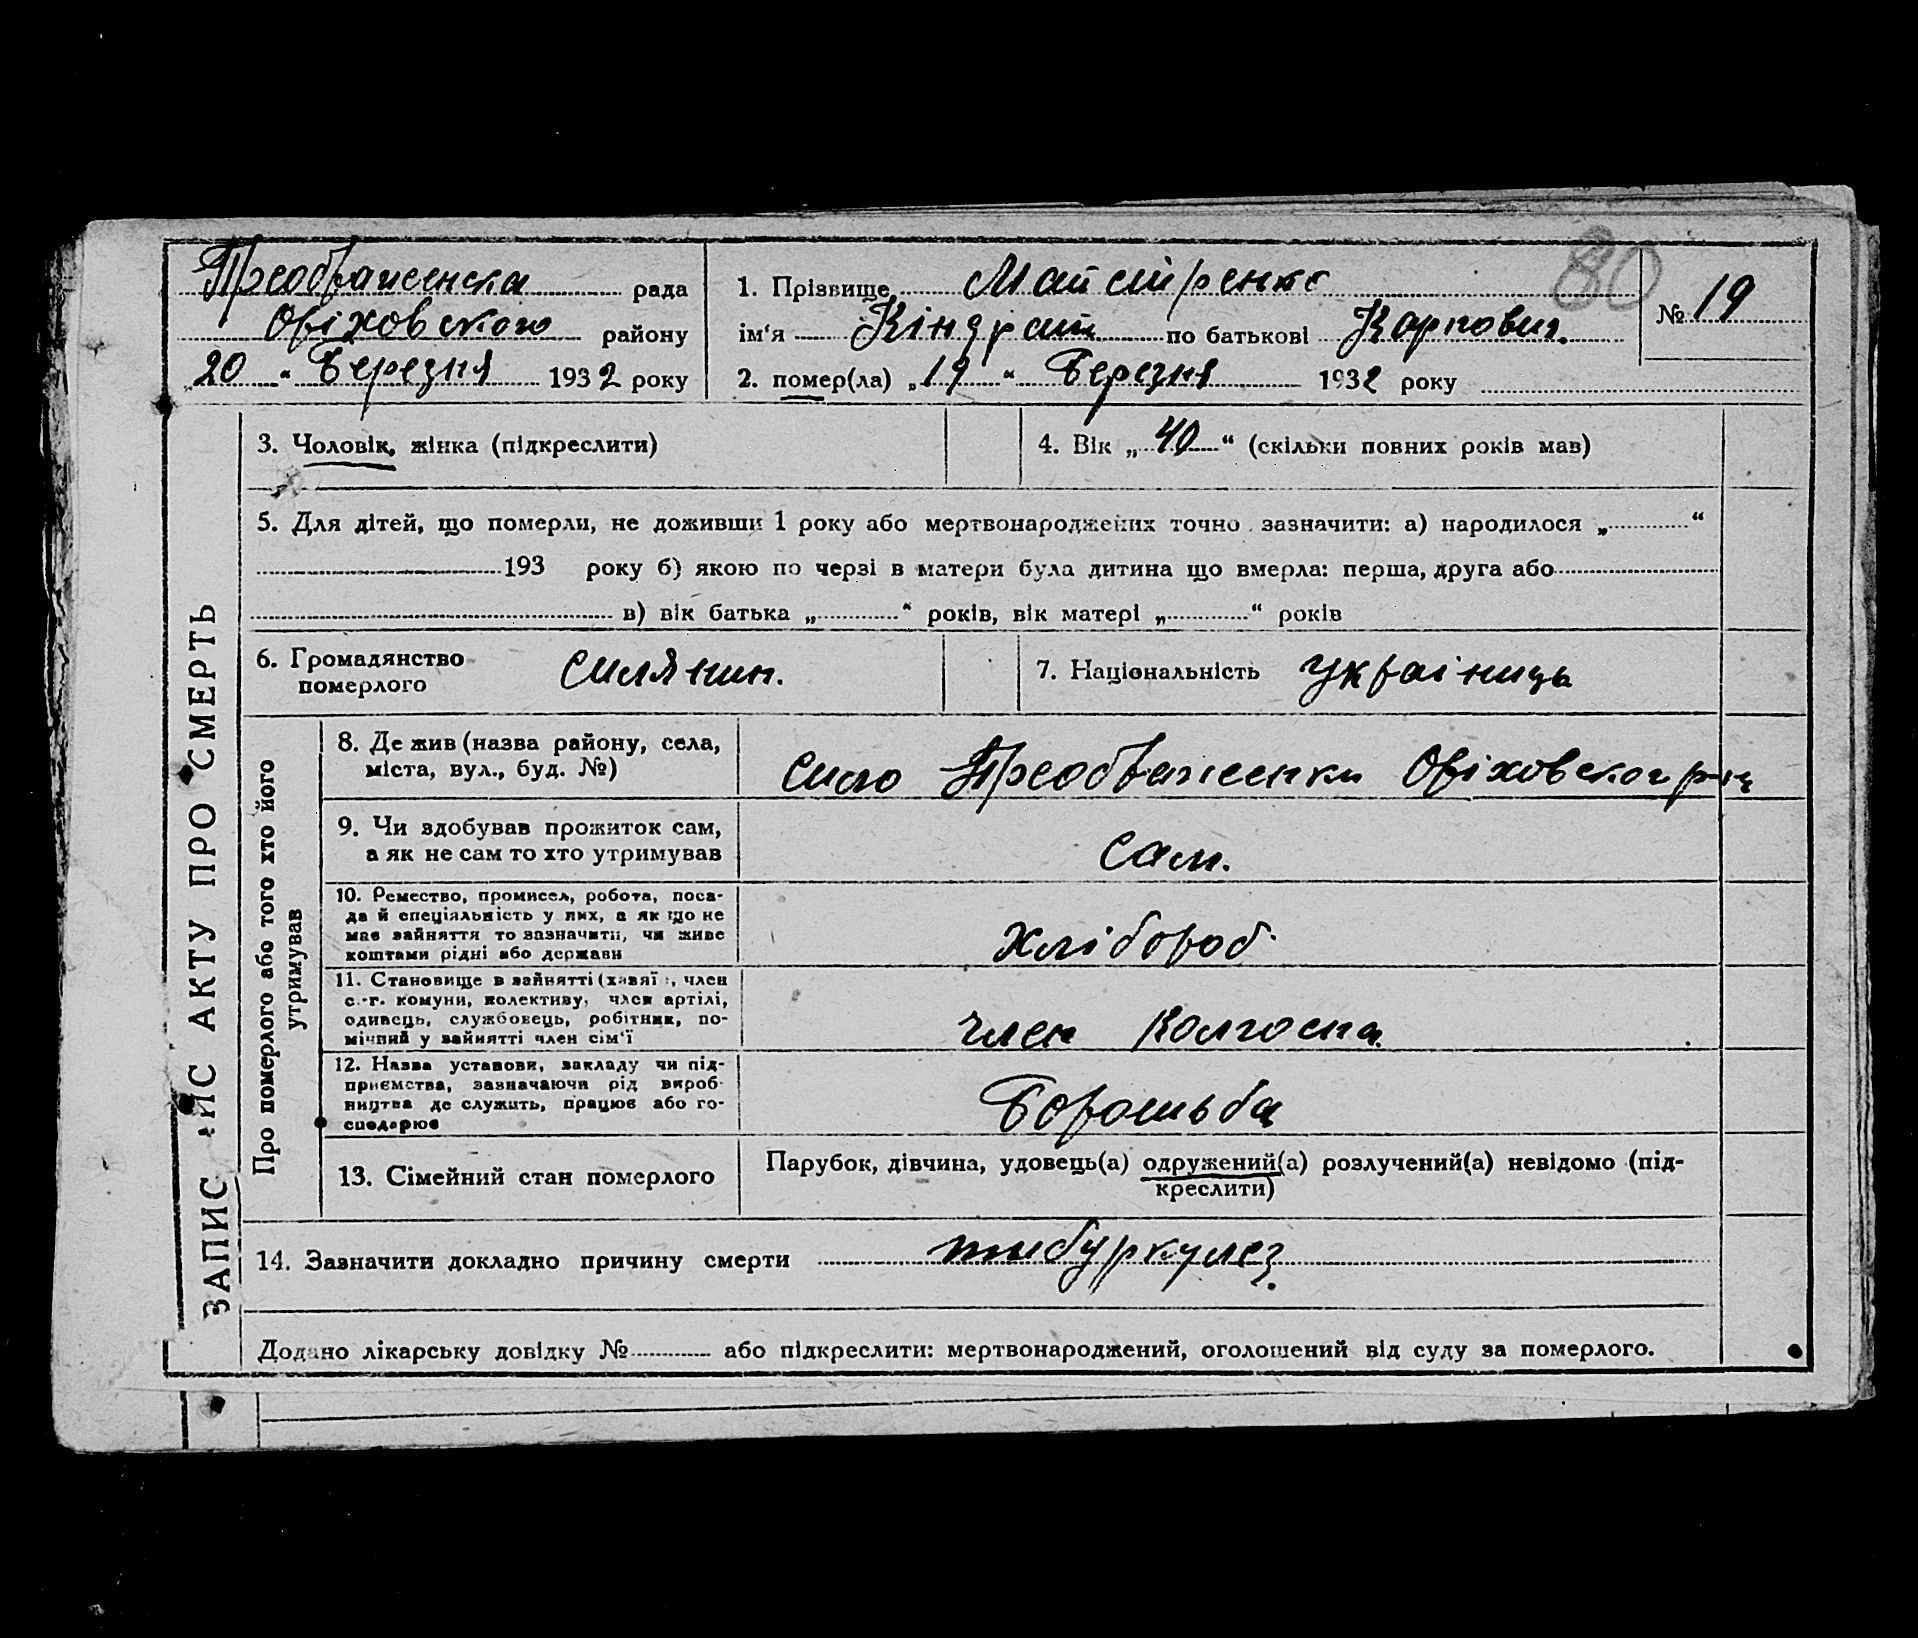 80
Преображенска рада
Оріховского району
„20“ Березня 1932 року
1. Прізвище Майстренко
ім‘я Кіндрат по батькові Карпович.
№ 19
2. помер(ла) „19“ Березня 1932 року
ЗАПИС АКТУ ПРО СМЕРТЬ
3. Чоловік, жінка (підкреслити)
4. Вік „40“ (скільки повних років мав)
5. Для дітей, що померли, не доживши 1 року або мертвонароджених точно зазначити: а) народилося „ “
193 року б) якою по черзі в матери була дитина що вмерла: перша, друга або
в) вік батька „ “ років, вік матері „ “ років
6. Громадянство
померлого
силянин.
7. Національність украіниць
Про померлого або того хто його
утримував
8. Де жив (назва району, села,
міста, вул., буд. №)
сило Преображенки Оріховског р-ну
9. Чи здобував прожиток сам,
а як не сам то хто утримував
сам.
10. Ремество, промисел, робота, поса-
да й спеціяльність у них, а як що не
має зайняття то зазначити, чи живе
коштами рідні або держави
хлібороб
11. Становище в зайнятті (хазяї , член
с.-г. комуни, колективу, член артілі,
одинець, службовець, робітник, по-
мічний у зайнятті член сім‘ї
член колгоспа.
12. Назва установи, закладу чи під-
приємства, зазначаючи рід вироб-
ництва де служить, працює або го-
сподарює
Боротьба
13. Сімейний стан померлого
Парубок, дівчина, удовець(а) одружений(а) розлучений(а) невідомо (під-
креслити)
14. Зазначити докладно причину смерти тибуркулез.
Додано лікарську довідку № або підкреслити: мертвонароджений, оголошений від суду за померлого.